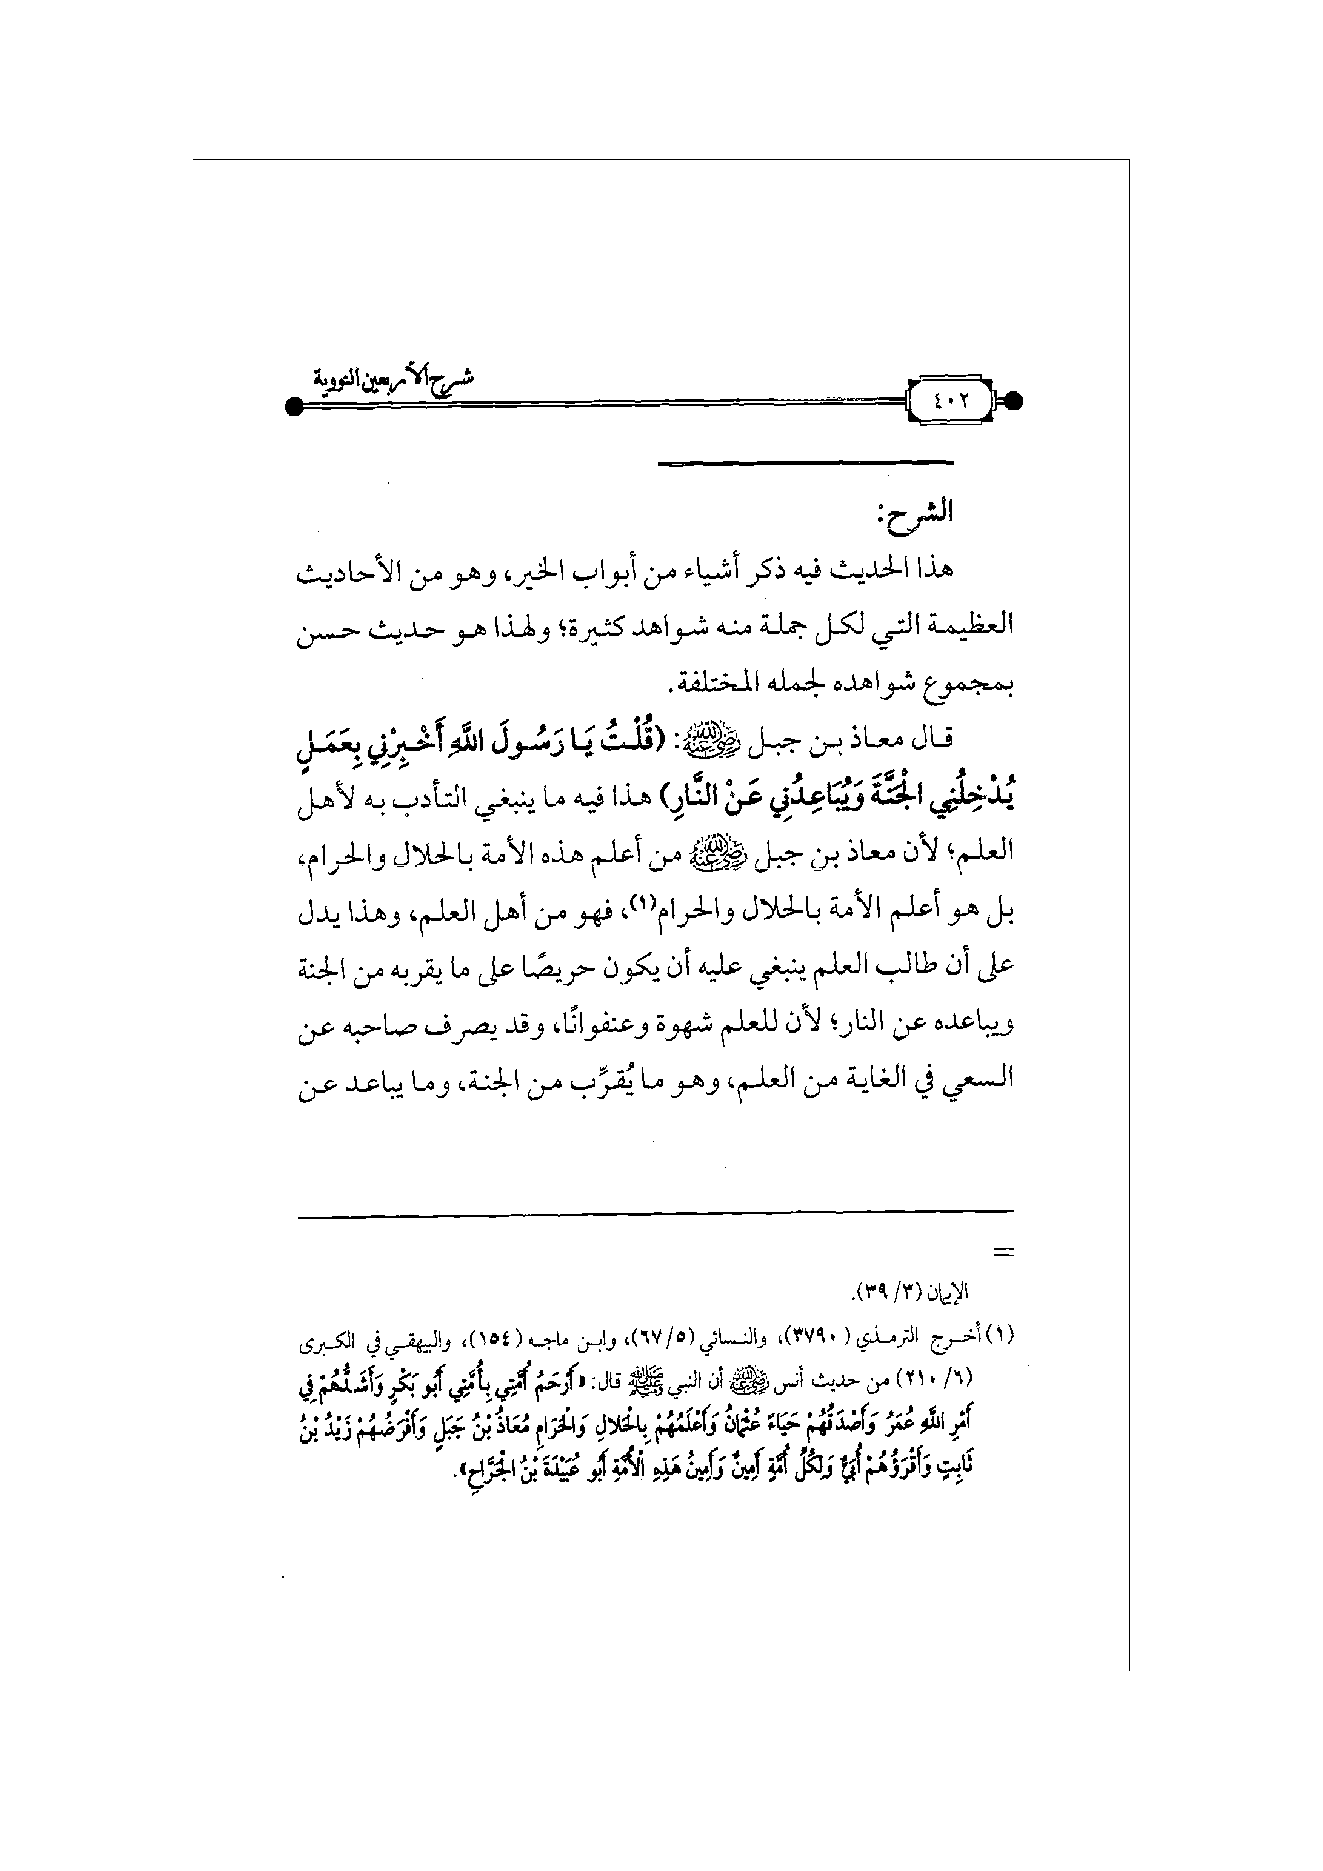 شرح الأربعين النووية
٤٠٢
الشرح:
هذا الحديث فيه ذكر أشياء من أبواب الخير، وهو من الأحاديث
العظيمة التي لكل جملة منه شواهد كثيرة؛ ولهذا هو حديث حسن
بمجموع شواهده لجمله المختلفة.
قال معاذ بن جبل رضي الله عنه: (قُلْتُ يَا رَسُولَ اللَّهِ أَخْبِرْنِي بِعَمَلٍ
يُدْخِلُنِي الْجَنَّةَ وَيُبَاعِدُنِي عَنْ النَّارِ) هذا فيه ما ينبغي التأدب به لأهل
العلم؛ لأن معاذ بن جبل رضي الله عنه من أعلم هذه الأمة بالحلال والحرام،
بل هو أعلم الأمة بالحلال والحرام(١)، فهو من أهل العلم، وهذا يدل
على أن طالب العلم ينبغي عليه أن يكون حريصًا على ما يقربه من الجنة
ويباعده عن النار؛ لأن للعلم شهوة وعنفوانًا، وقد يصرف صاحبه عن
السعي في الغاية من العلم، وهو ما يُقرِّب من الجنة، وما يباعد عن
=
الإيمان (٣/ ٣٩).
(١) أخرج الترمذي (٣٧٩٠)، والنسائي (٥/ ٦٧)، وابن ماجه (١٥٤)، والبيهقي في الكبرى
(٦/ ٢١٠) من حديث أنس رضي الله عنه أن النبي ﷺ قال: «أَرْحَمُ أُمَّتِي بِأُمَّتِي أَبُو بَكْرٍ وَأَشَدُّهُمْ فِي
أَمْرِ اللَّهِ عُمَرُ وَأَصْدَقُهُمْ حَيَاءً عُثْمَانُ وَأَعْلَمُهُمْ بِالْحَلَالِ وَالْحَرَامِ مُعَاذُ بْنُ جَبَلٍ وَأَفْرَضُهُمْ زَيْدُ بْنُ
ثَابِتٍ وَأَقْرَؤُهُمْ أُبَيٌّ وَلِكُلِّ أُمَّةٍ أَمِينٌ وَأَمِينُ هَذِهِ الْأُمَّةِ أَبُو عُبَيْدَةَ بْنُ الْجَرَّاحِ».